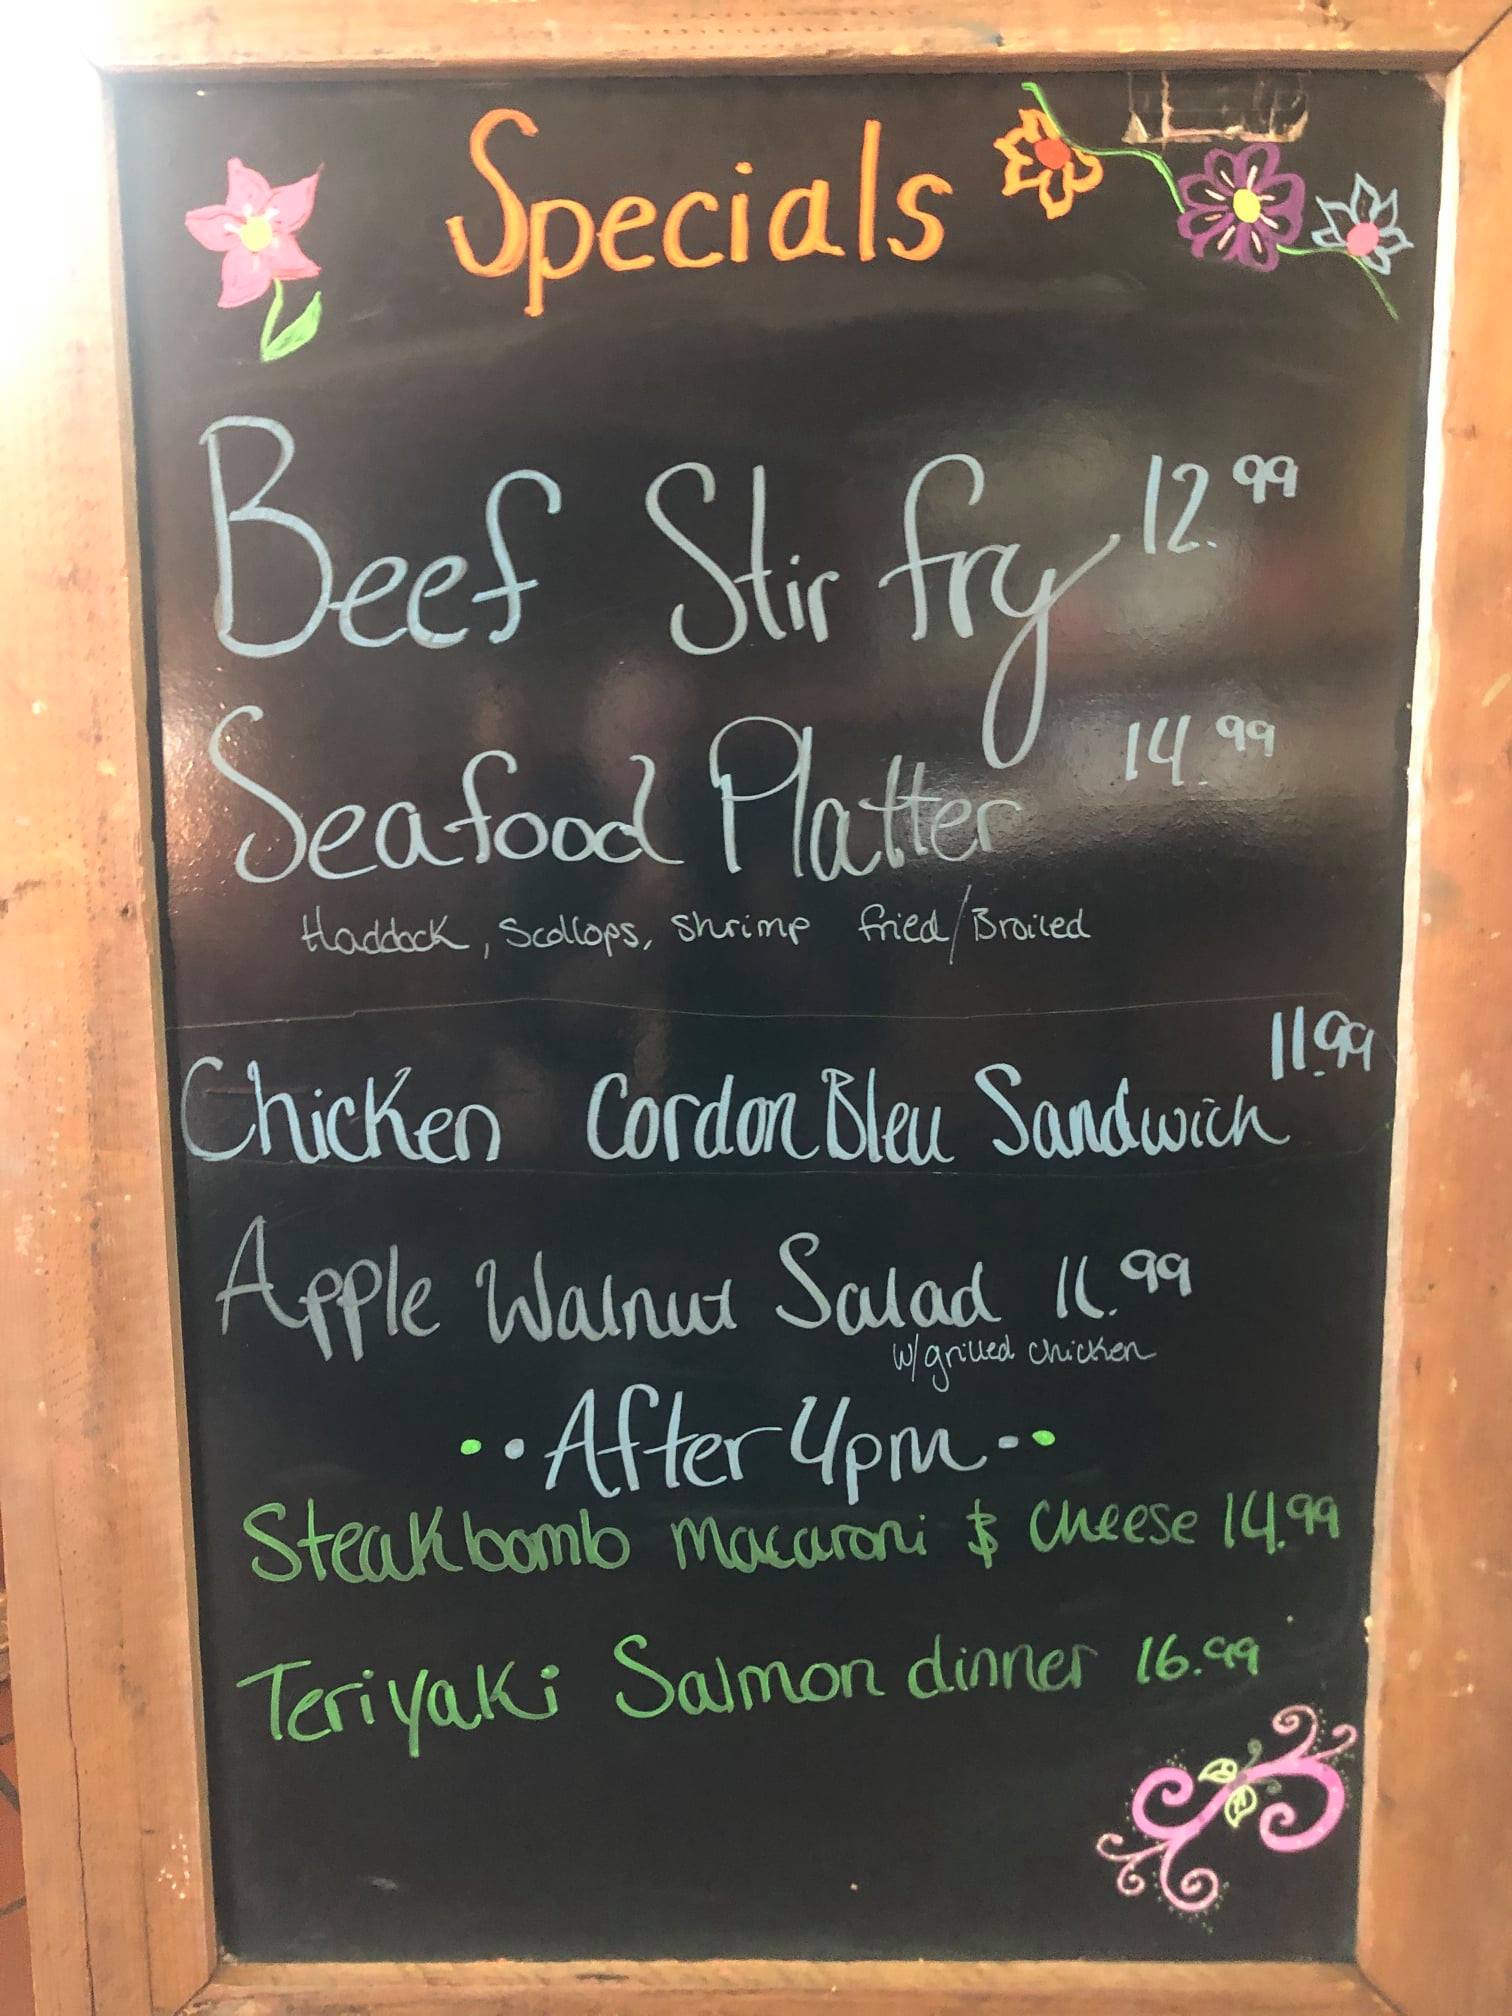 Specials
Beef Stir fry 12.99
Seafood Platter 14.99
Haddock, Scollops, Shrimp fried/Broiled
Chicken Cordon Bleu Sandwich 11.99
Apple Walnut Salad 11.99
w/grilled chicken
••After 4pm••
Steakbomb macaroni & cheese 14.99
Teriyaki Salmon dinner 16.99